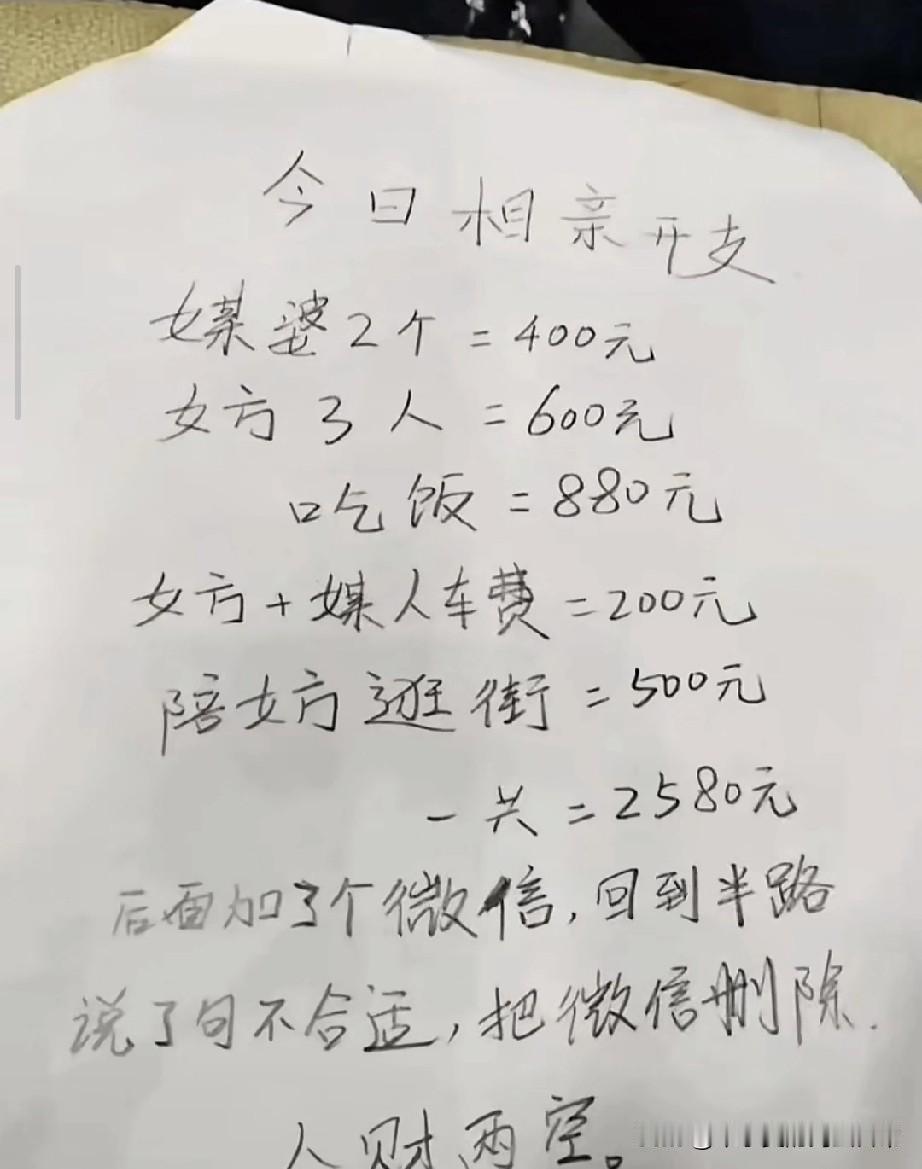 今日相亲开支
媒婆2个=400元
女方3人=600元
吃饭=880元
女方+媒人车费=200元
陪女方逛街=500元
一共=2580元
后面加了个微信,回到半路
说了句不合适,把微信删除.
人财两空。